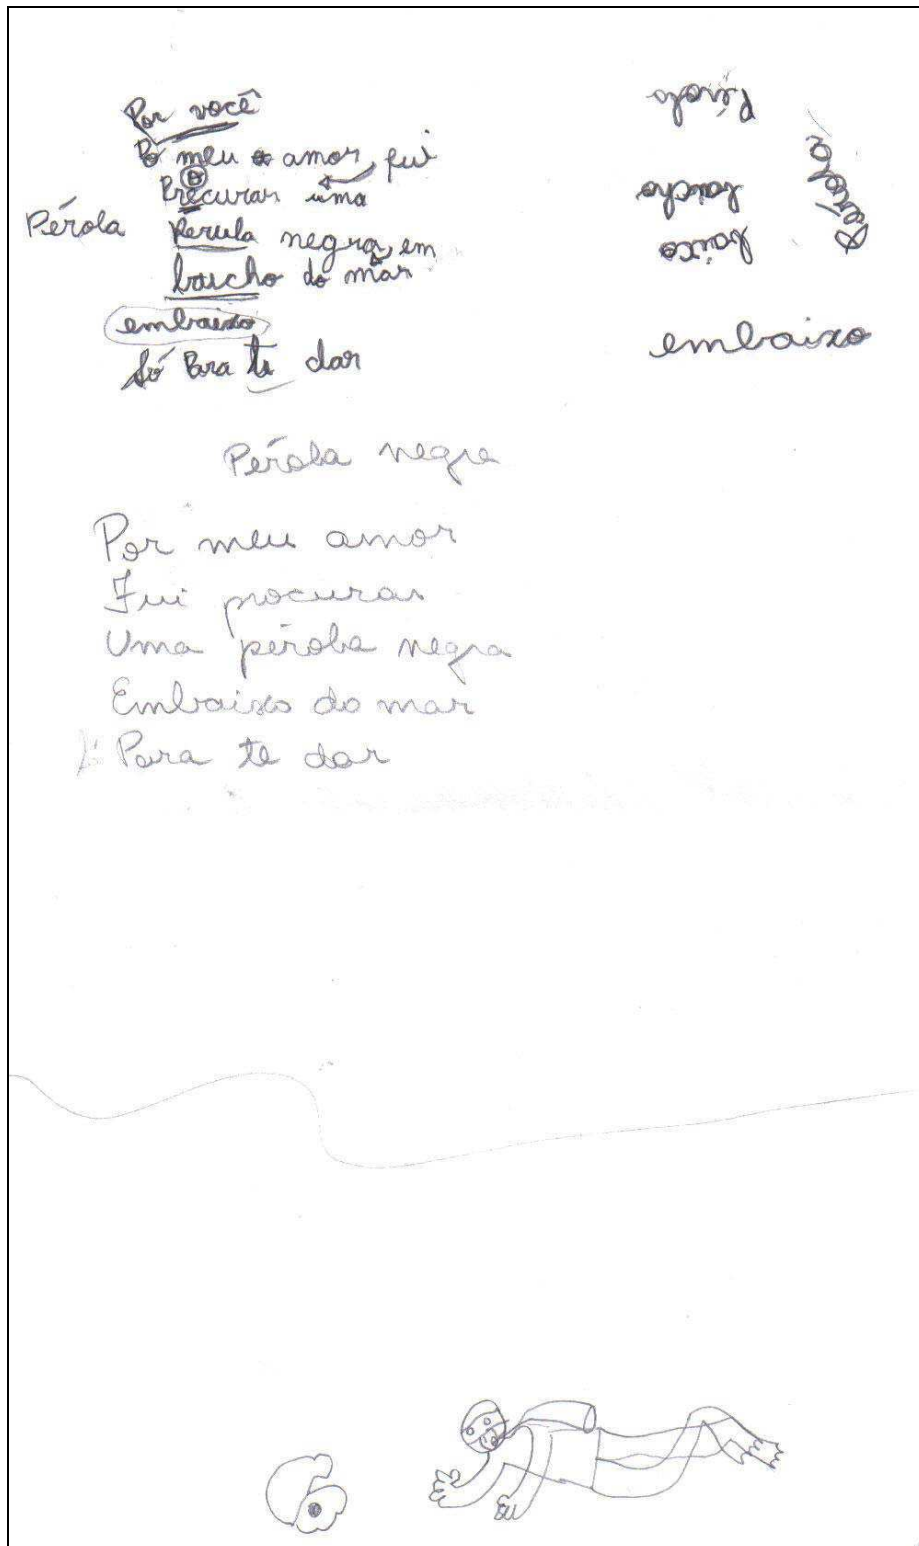 Por você
Po meu amor, fui
Precurar uma
o
Pérola
Perula negra, em
baucho do mar
embaixo
Só Para te dar
Pérola
baicho
baixo
Pérola
embaixo
Pérola negra
Por meu amor
Fui procurar
Uma pérola negra
Embaixo do mar
Só Para te dar